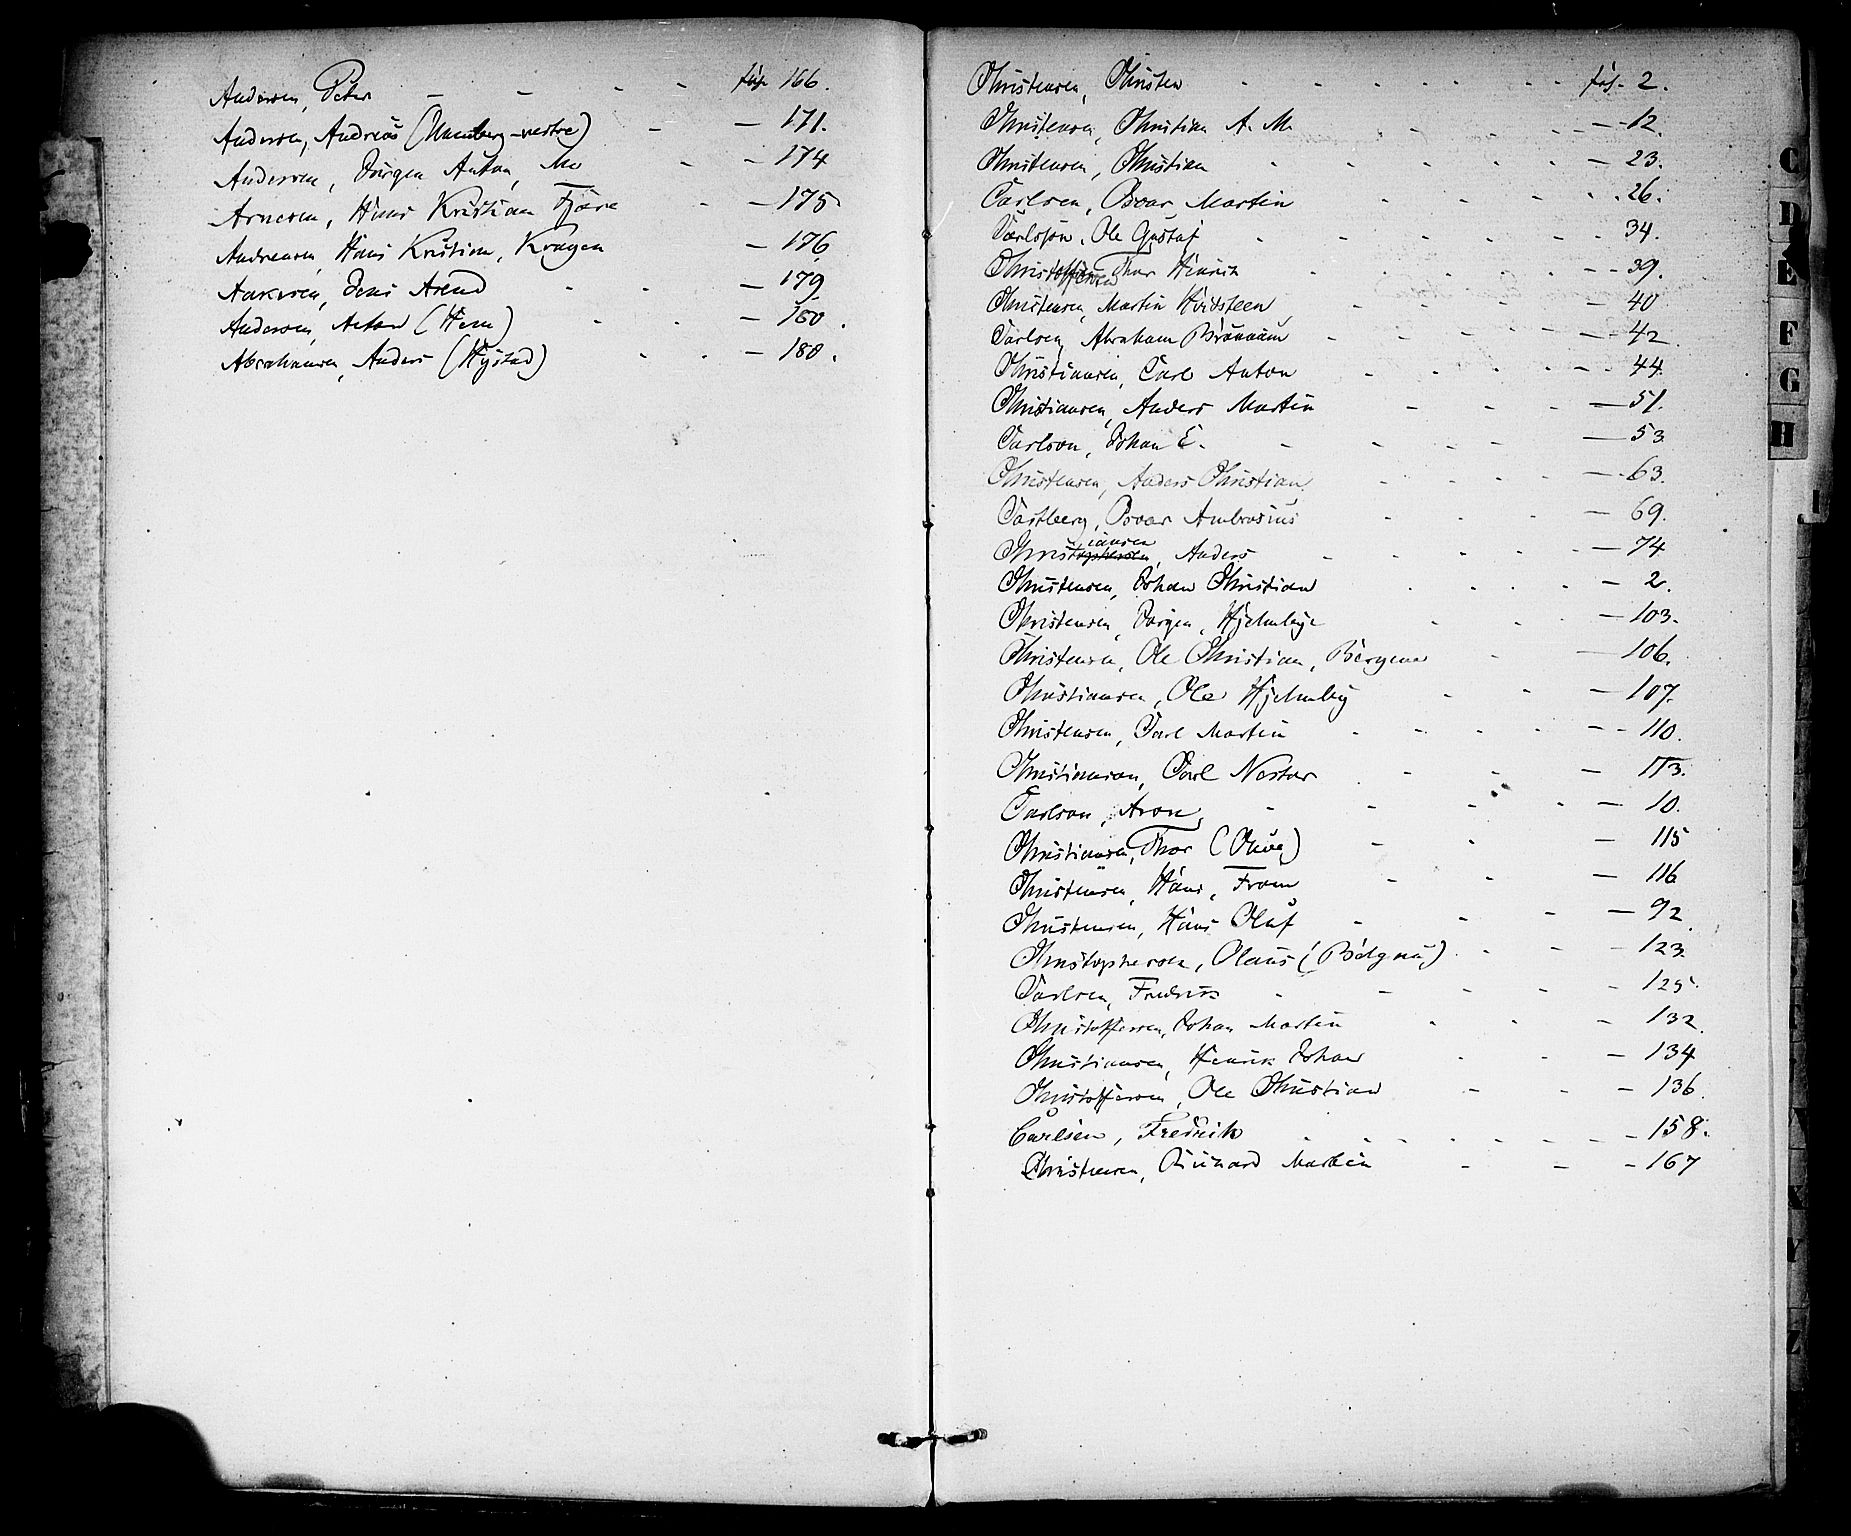 Andersen, Peter - - - - fol. 166.
Andersen, Andreas (Unneberg-vestre) - - 171.
Andersen, Jørgen Anton, Mo - - 174
Arnesen, Hans Kristian Fjære - - 175
Andreasen, Hans Kristian, Kragen - 176
Aakesen, Jens Arend - - - 179
Andersen, Anton (Hem) - - - 180.
Abrahamsen, Anders (Hystad) - - - 180.
Christensen, Christen - - - - fol. 2.
Christensen, Christian A. M. - - - 12.
Christensen, Christian - - - - 23.
Carlsen, Oscar Martin - - - - 26.
Carlsson, Ole Gustaf - - - - 34.
Christoffersen Thor Hinrich - - - - 39.
Christensen, Martin Hvidsteen - - - 40
Carlsen, Abraham - - - - 42.
Christiansen, Carl Anton - - - - 44.
Christiansen, Anders Martin - - - 51.
Carlson, Johan E. - - - - 53
Christensen, Anders Christian - - - 63.
Castberg, Oscar Ambrosius - - - 69.
Christiansen, Anders - - - - 74
Christensen, Johan Christian - - - 2.
Christensen, Jørgen, Hjelmbye - - - 103.
Christensen, Ole Christian, Bergene - - 106.
Christiansen, Ole Hjelmby - - - 107.
Christensen, Carl Martin - - - - 110.
Christiansen, Carl Nestor - - - 113.
Carlson, Aron, - - - - 10.
Christiansen, Thor - - - 115
Christensen, Hans, From - - - 116
Christensen, Hans Oluf - - - - 92.
Christophersen, Olaus - - - 123.
Carlsen, Fredrik - - - - 125.
Christoffersen, Johan Martin - - - 132.
Christiansen, Henrik Johan - - - 134
Christoffersen, Ole Christian - - - 136.
Carlsen, Fredrik - - - - 158.
Christensen, Richard Martin - - - 167
C
D
E
F
G
H
I
X
Y
Z